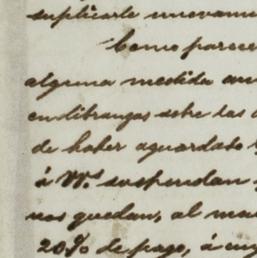 suplicarle nuevame
Como parece
alguna medida an
en libranzas sobre las
de haber aguardado
á VV.s suspendan
nos quedan, al
20% de pago, á